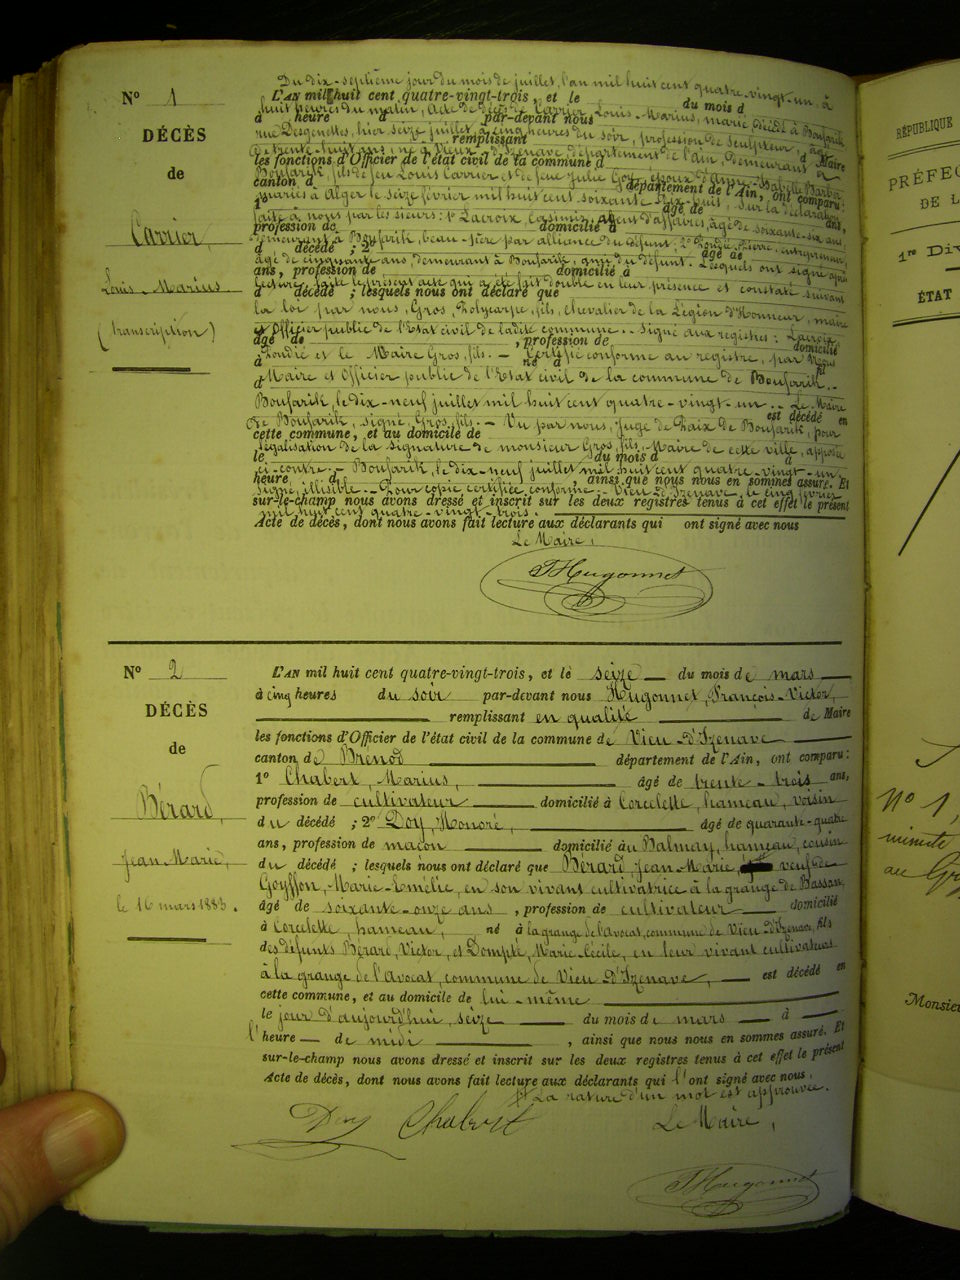 Nº 1
DÉCÈS
de
Carrier
Louis Marius
(transcription)
Du dix-septième jour du mois de juillet, l'an mil huit cent quatre-vingt-un à
L'AN mil huit cent quatre-vingt-trois, et le du mois d
huit heures du matin, acte de décès de Carrier Louis-Marius, marié, décédé à Boufarik
à heure d par-devant nous
rue Desgenettes, hier seize juillet, à cinq heures du soir, profession de sculpteur, âgé
remplissant d Maire
de trente-huit ans, né à Vieux-d'Izenave département de l'Ain, demeurant à
les fonctions d'Officier de l'état civil de la commune d
Boufarik, fils de feu Louis Carrier et de feue Julie Goy, époux d'Anne-Isabelle Barba
canton d département de l'Ain, ont comparu:
mariés à Alger le seize février mil huit cent soixante-dix-huit, Sur la déclaration
1º âgé de ans,
faite à nous par les sieurs: 1º Lacroix Casimir, agent d'affaires, âgé de soixante-six ans,
profession de domicilié à
demeurant à Boufarik, beau-père par alliance du défunt; 2º Pierre, entrepreneur,
d décédé ; 2º âgé de
âgé de cinquante ans, demeurant à Boufarik, ami du défunt. Lesquels ont signé après
ans, profession de domicilié à
lecture faite le présent acte qui a été fait double en leur présence et constaté suivant
d décédé ; lesquels nous ont déclaré que
la loi par nous, Gros, Polycarpe, fils, chevalier de la Légion d'Honneur, maire
et Officier public de l'Etat civil de ladite commune. Signé aux registres: Lacroix
âgé de , profession de domicilié
et le Maire Gros, fils. — Certifié conforme au registre, par Nous
à né à fil
Maire et Officier public de l'Etat civil de la commune de Boufarik.
d
Boufarik, le dix-neuf juillet mil huit cent quatre-vingt-un. Le Maire
est décédé en
de Boufarik, signé, Gros, fils. — Vu par nous, Juge de Paix de Boufarik, pour
cette commune, et au domicile de
légalisation de la signature de monsieur Gros, fils, Maire de cette ville, apposée
le du mois d à
ci-contre. — Boufarik, le dix-neuf juillet mil huit cent quatre-vingt-un
heure d , ainsi que nous nous en sommes assuré. Et
signé, illisible. — Pour copie certifiée conforme. Vieu-d'Izenave, le cinq février
sur-le-champ nous avons dressé et inscrit sur les deux registres tenus à cet effet le présent
mil huit cent quatre-vingt-trois.
Acte de décès, dont nous avons fait lecture aux déclarants qui ont signé avec nous
Le Maire,
Hugonnet
Nº 2
DÉCÈS
de
Bérard,
Jean Marie,
le 16 mars 1883.
L'AN mil huit cent quatre-vingt-trois, et le seize du mois de mars
à cinq heures du soir par-devant nous Hugonnet, François-Victor,
remplissant en qualité de Maire
les fonctions d'Officier de l'état civil de la commune de Vieu-d'Izenave
canton de Brenod département de l'Ain, ont comparu:
1º Chabert, Marius, âgé de trente-trois ans,
profession de cultivateur domicilié à Corcelette, hameau, voisin
du décédé ; 2º Doy, Honoré, âgé de quarante-quatre
ans, profession de maçon domicilié au Balmay, hameau, cousin
du décédé ; lesquels nous ont déclaré que Bérard Jean-Marie, veuf de
Goyffon, Marie-Emélie, en son vivant cultivatrice à la grange de Bassan,
âgé de soixante-onze ans , profession de cultivateur domicilié
à Corcelette, hameau, né à la grange de l'Avocat, commune de Vieu-d'Izenave, fils
des défunts Bérard, Victor, et Dompté, Marie Cécile, en leur vivant cultivateurs
à la grange de l'Avocat, commune de Vieu-d'Izenave, est décédé en
cette commune, et au domicile de lui-même
le jour d'aujourd'hui, seize du mois de mars à
l'heure de midi , ainsi que nous nous en sommes assuré. Et
sur-le-champ nous avons dressé et inscrit sur les deux registres tenus à cet effet le présent
Acte de décès, dont nous avons fait lecture aux déclarants qui l'ont signé avec nous.
La rature d'un mot est approuvée.
Doy Chabert Le Maire,
Hugonnet
RÉPUBLIQUE
PRÉFEC
DE L
1re DIV
ÉTAT
Nº 1,
minute
au
Monsie